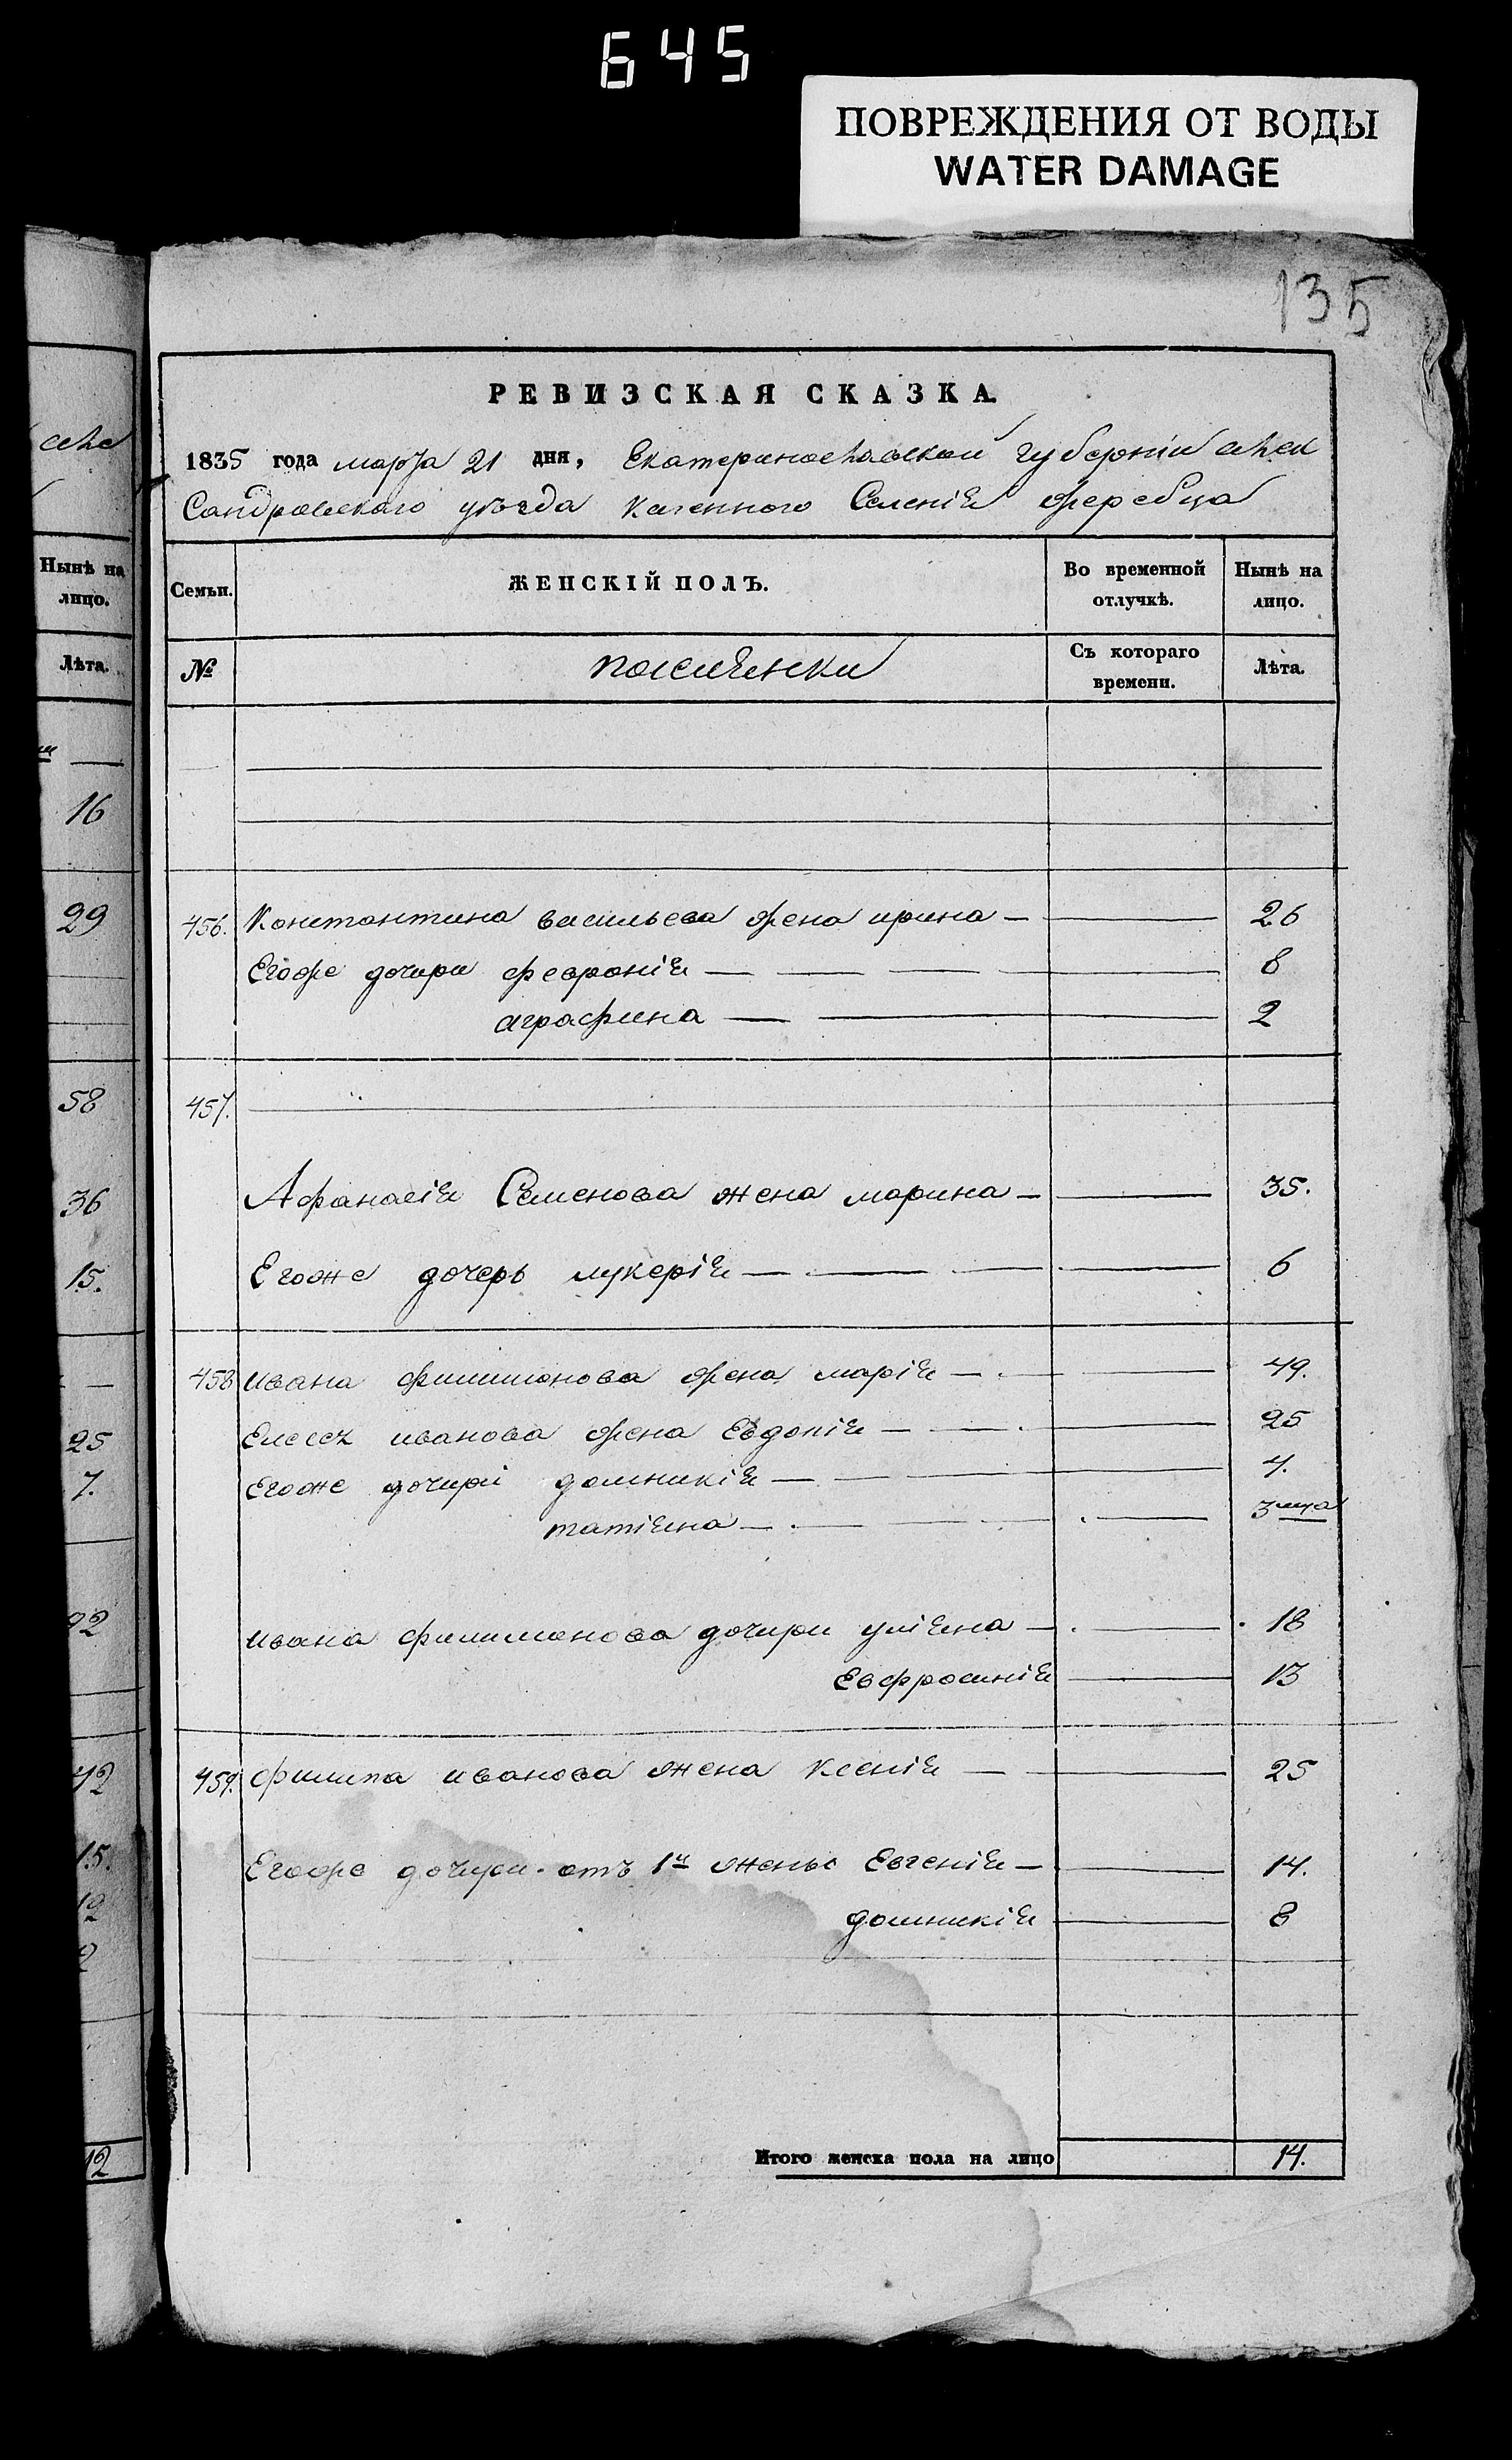 645
ПОВРЕЖДЕНИЯ ОТ ВОДЫ
WATER DAMAGE
135
РЕВИЗСКАЯ СКАЗКА.
1835 года марта 21 дня, Екатеринославской губерніи Алек
Сандровскаго уѣзда казенного Селенія жеребца
Семьи.
ЖЕНСКІЙ ПОЛЪ.
Во временной отлучкѣ.
Нынѣ на лицо.
№
поселянки
Съ котораго времени.
Лѣта.
456. Константина васильева жена ирина — 26
Егоже дочири февронія — 8
аграфина — 2
457.
Афанасія Семенова жена марина — 35.
Егоже дочерь лукерія — 6
458 ивана филимонова жена марія — 49.
Елесея иванова жена Евдокія — 25
Егоже дочири домникія — 4.
татіяна — 3 мца
ивана филимонова дочири уліяна — 18
Евфросинія 13
459. филипа иванова жена ксенія — 25
Егоже дочири отъ 1й жены Евгенія — 14.
домникія 8
Итого женска пола на лицо 14.
Нынѣ на
лицо.
Лѣта.
16
29
58
36
15.
25
7.
15.
12